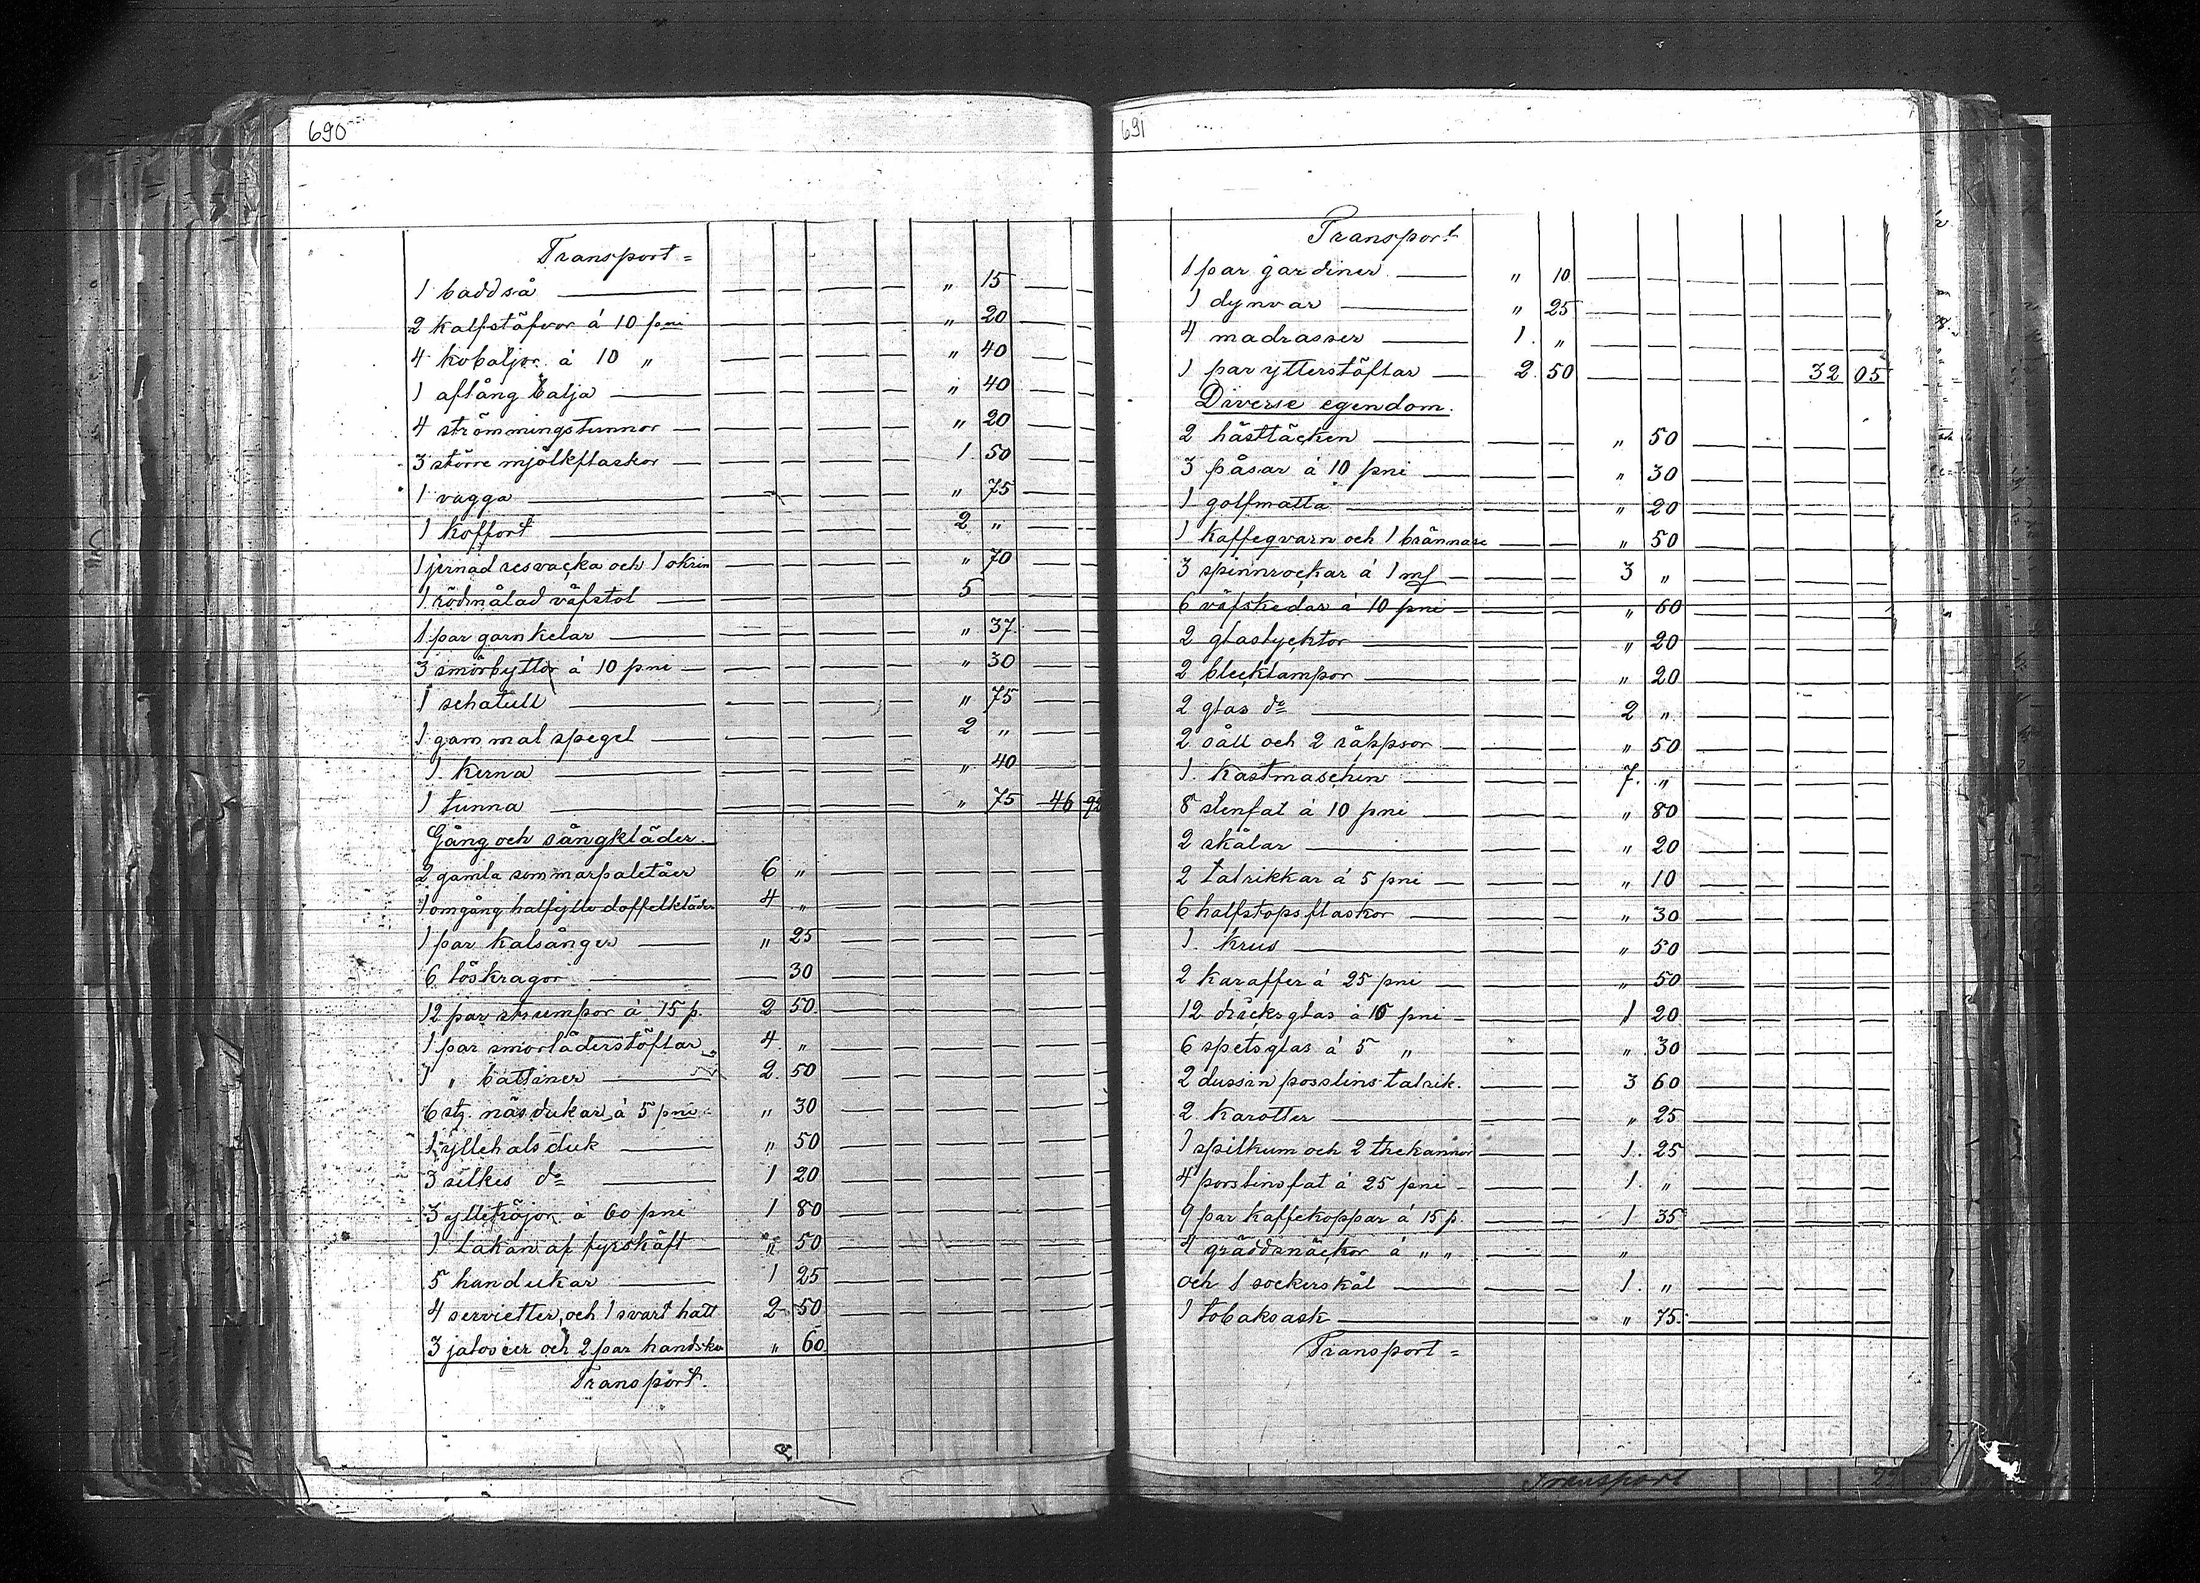 690
Transport =
1 baddså " 15
2 kalfstäfvor á 10 pni " 20
4 kobaljor á 10 " " 40
1 aflång balja " 40
4 strömmingstunnor " 20
3 större mjölkflaskor 1 50
1 vagga " 75
1 koffort 2 "
1 jernad resvacka och 1 skrin " 70
1 rödmålad väfstol 5
1 par garnkelar " 37
3 smörbyttor á 10 pni " 30
1 schatull " 75
1 gammal spegel 2 "
1 kerna " 40
1 tunna " 75 46
Gång och sängkläder.
2 gamla sommarpaletåer 6 "
1 omgång halfylle doffelkläder 4 "
1 par kalsånger " 25
6 löskragor 30
12 par strumpor á 15 p. 2 50
1 par smorläderstöflar 4 "
1 " battiner 2 50
6 st. näsdukar á 5 pni " 30
1 yllehalsduk " 50
3 silkes do 1 20
3 ylletröjor á 60 pni 1 80
1 lakan af fyrskäft " 50
5 handukar 1 25
4 servietter, och 1 svart hatt 2 50
3 jalosier och 2 par handskar " 60
Transport.
691
Transport
1 par gardiner " 10
1 dynvar " 25
4 madrasser 1 "
1 par ytterstöflar 2 50 32 05
Diverse egendom.
2 hästtäcken " 50
3 påsar á 10 pni " 30
1 golfmatta " 20
1 kaffeqvarn och 1 brännare " 50
3 spinnrockar á 1 mf 3 "
6 väfskedar á 10 pni " 60
2 glaslycktor " 20
2 blecklampor " 20
2 glas do 2 "
2 såll och 2 räppsor " 50
1 kastmaschin 7 "
8 stenfat á 10 pni " 80
2 skålar " 20
2 talrikkar á 5 pni " 10
6 halfstopsflaskor " 30
1 krus " 50
2 karaffer á 25 pni " 50
12 dricksglas a 10 pni 1 20
6 spetsglas á 5 " " 30
2 dussin posslins talrik. 3 60
2 karotter " 25
1 spilkum och 2 thekannor 1 25
4 porslinsfat á 25 pni 1 "
9 par kaffekoppar á 15 p. 1 35
4 gräddsnäckor á " " "
och 1 sockerskål 1 "
1 tobaksask " 75
Transport =
Transport